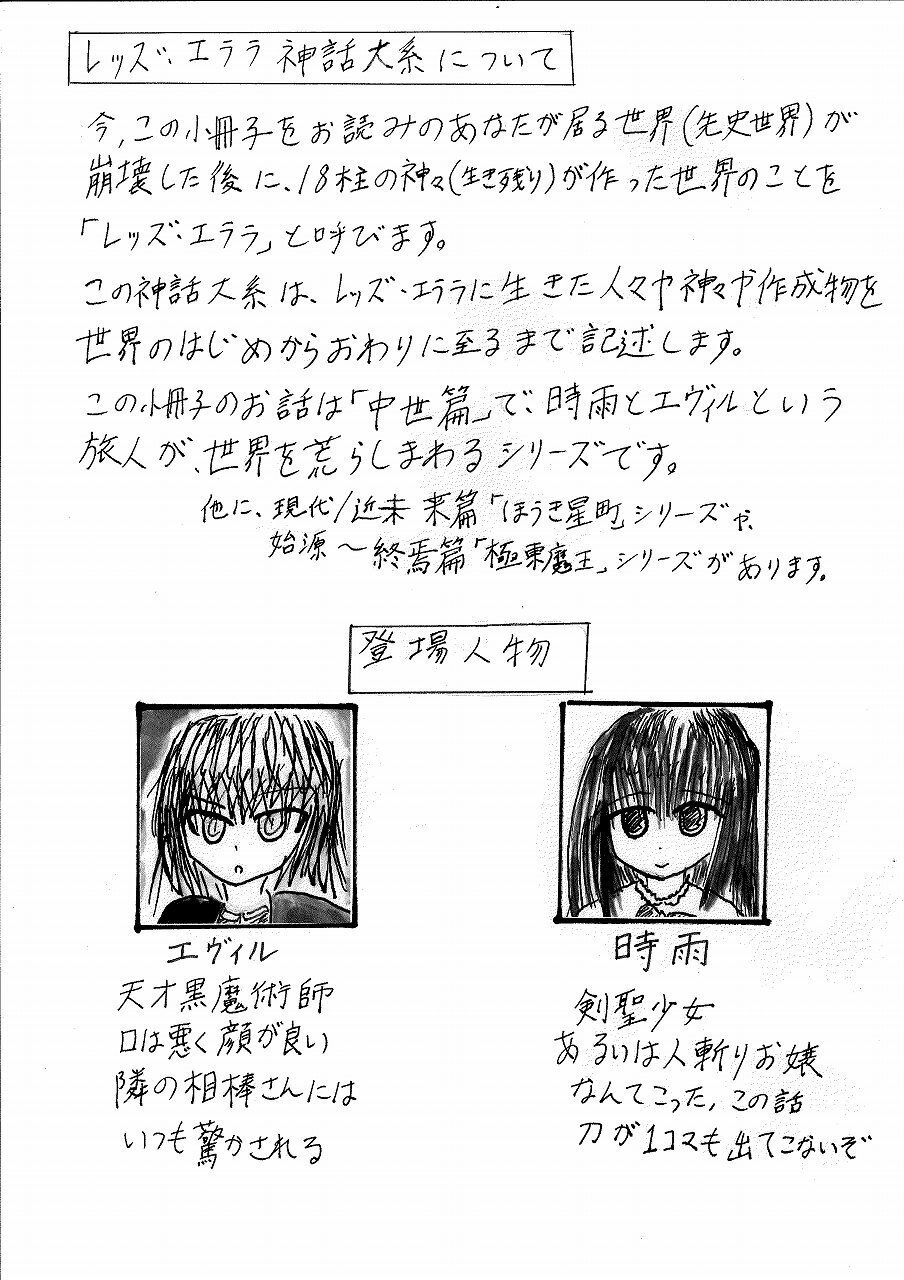 レッズ・エララ神話大系について
今、この小冊子をお読みのあなたが居る世界(先史世界)が
崩壊した後に、18柱の神々(生き残り)が作った世界のことを
「レッズ・エララ」と呼びます。
この神話大系は、レッズ・エララに生きた人々や神々や作成物を
世界のはじめからおわりに至るまで記述します。
この小冊子のお話は「中世篇」で、時雨とエヴィルという
旅人が、世界を荒らしまわるシリーズです。
他に、現代/近未来篇「ほうき星町」シリーズや、
始源〜終焉篇「極東魔王」シリーズがあります。
登場人物
エヴィル
天才黒魔術師
口は悪く顔が良い
隣の相棒さんには
いつも驚かされる
時雨
剣聖少女
あるいは人斬りお嬢
なんてこった、この話
刀が1コマも出てこないぞ